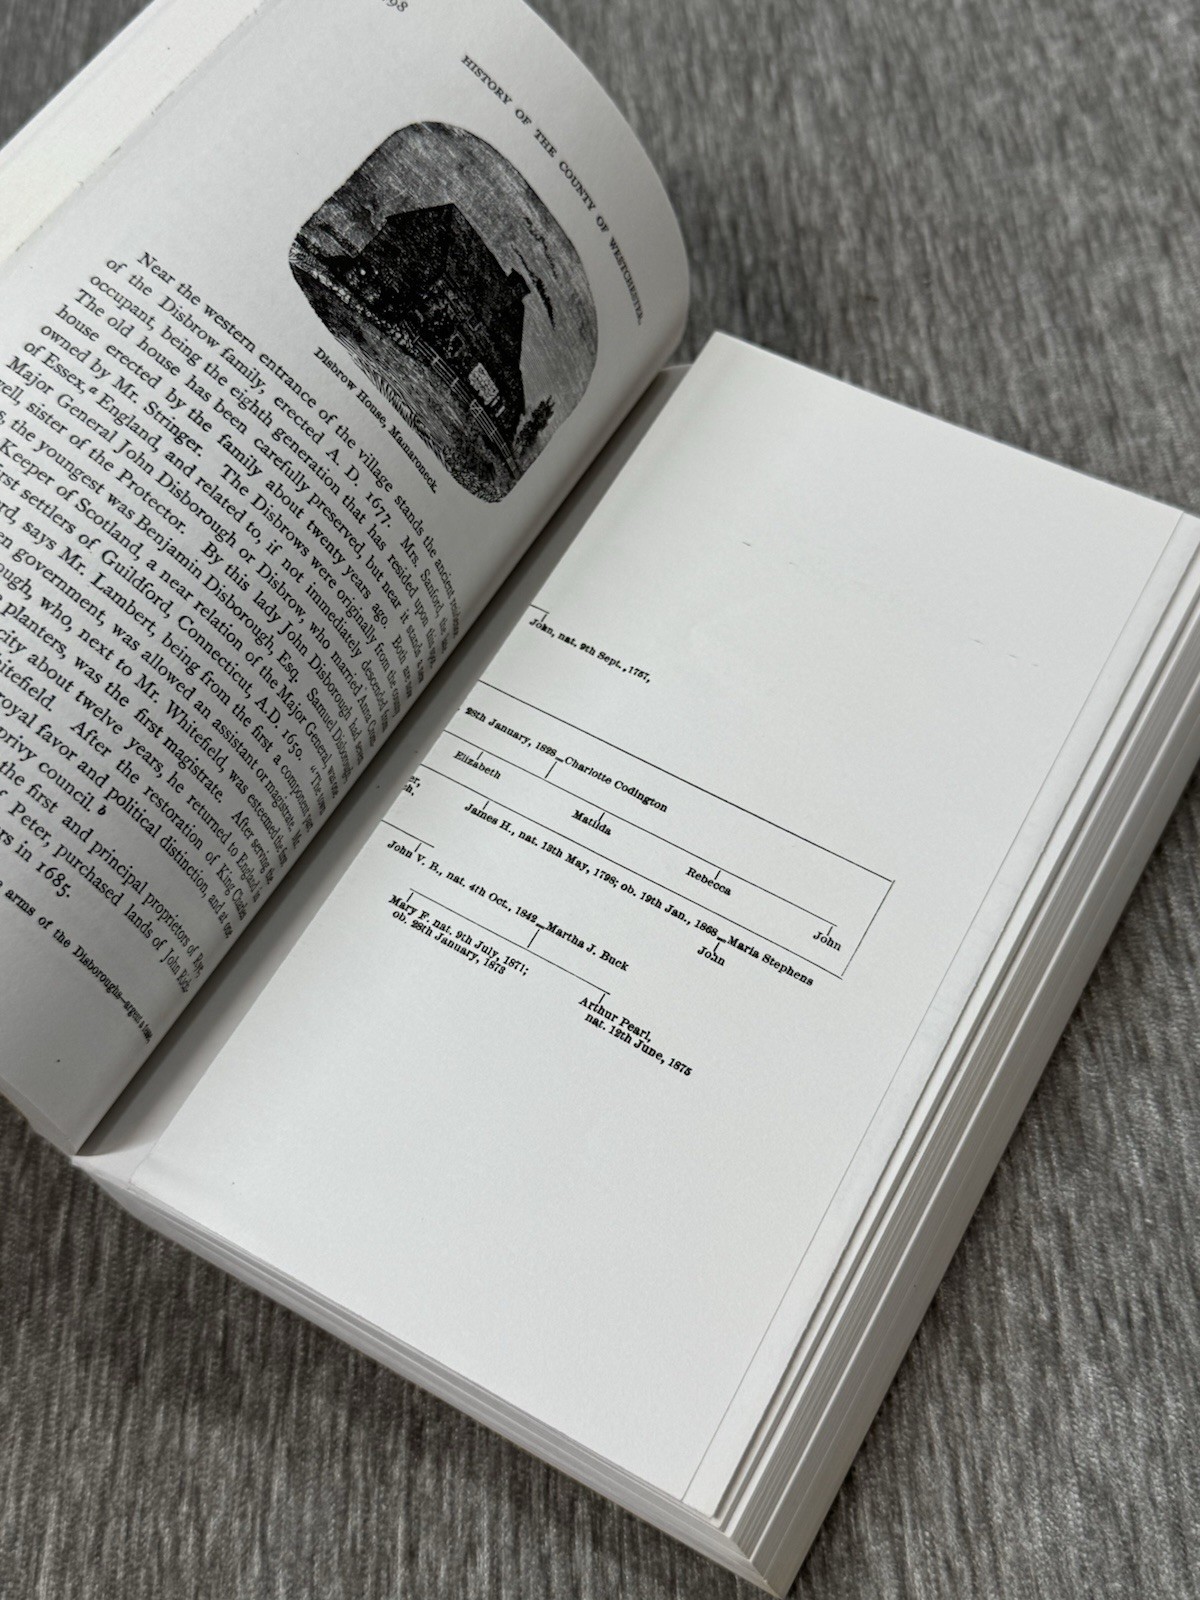 98
HISTORY OF THE COUNTY OF WESTCHESTER.
Disbrow House, Mamaroneck.
Near the western entrance of the village stands the ancient residence
of the Disbrow family, erected A. D. 1677. Mrs. Sanford, the late
occupant, being the eighth generation that has resided upon this spot.
The old house has been carefully preserved, but near it stands a new
house erected by the family about twenty years ago. Both are now
owned by Mr. Stringer. The Disbrows were originally from the county
of Essex,a England, and related to, if not immediately descended from
Major General John Disborough or Disbrow, who married Anna Crom-
well, sister of the Protector. By this lady John Disborough had seven
the youngest was Benjamin Disborough, Esq. Samuel Disborough
Keeper of Scotland, a near relation of the Major General, was one
first settlers of Guildford, Connecticut, A.D. 1650. "The town
says Mr. Lambert, being from the first a component part
government, was allowed an assistant or magistrate. Mr.
who, next to Mr. Whitefield, was esteemed the first
planters, was the first magistrate. After serving the
city about twelve years, he returned to England in
Whitefield. After the restoration of King Charles
royal favor and political distinction, and at one
privy council. b
the first and principal proprietors of Rye,
of Peter, purchased lands of John Rich-
in 1685.
arms of the Disboroughs—argent a fesse,
John, nat. 9th Sept., 1767,
28th January, 1828 Charlotte Codington
Elizabeth
Matilda
Rebecca
John
er,
ch.
James H., nat. 13th May, 1798; ob. 19th Jan., 1868 Maria Stephens
John
John V. B., nat. 4th Oct., 1842 Martha J. Buck
Mary F. nat. 9th July, 1871;
ob. 28th January, 1873
Arthur Pearl,
nat. 12th June, 1875